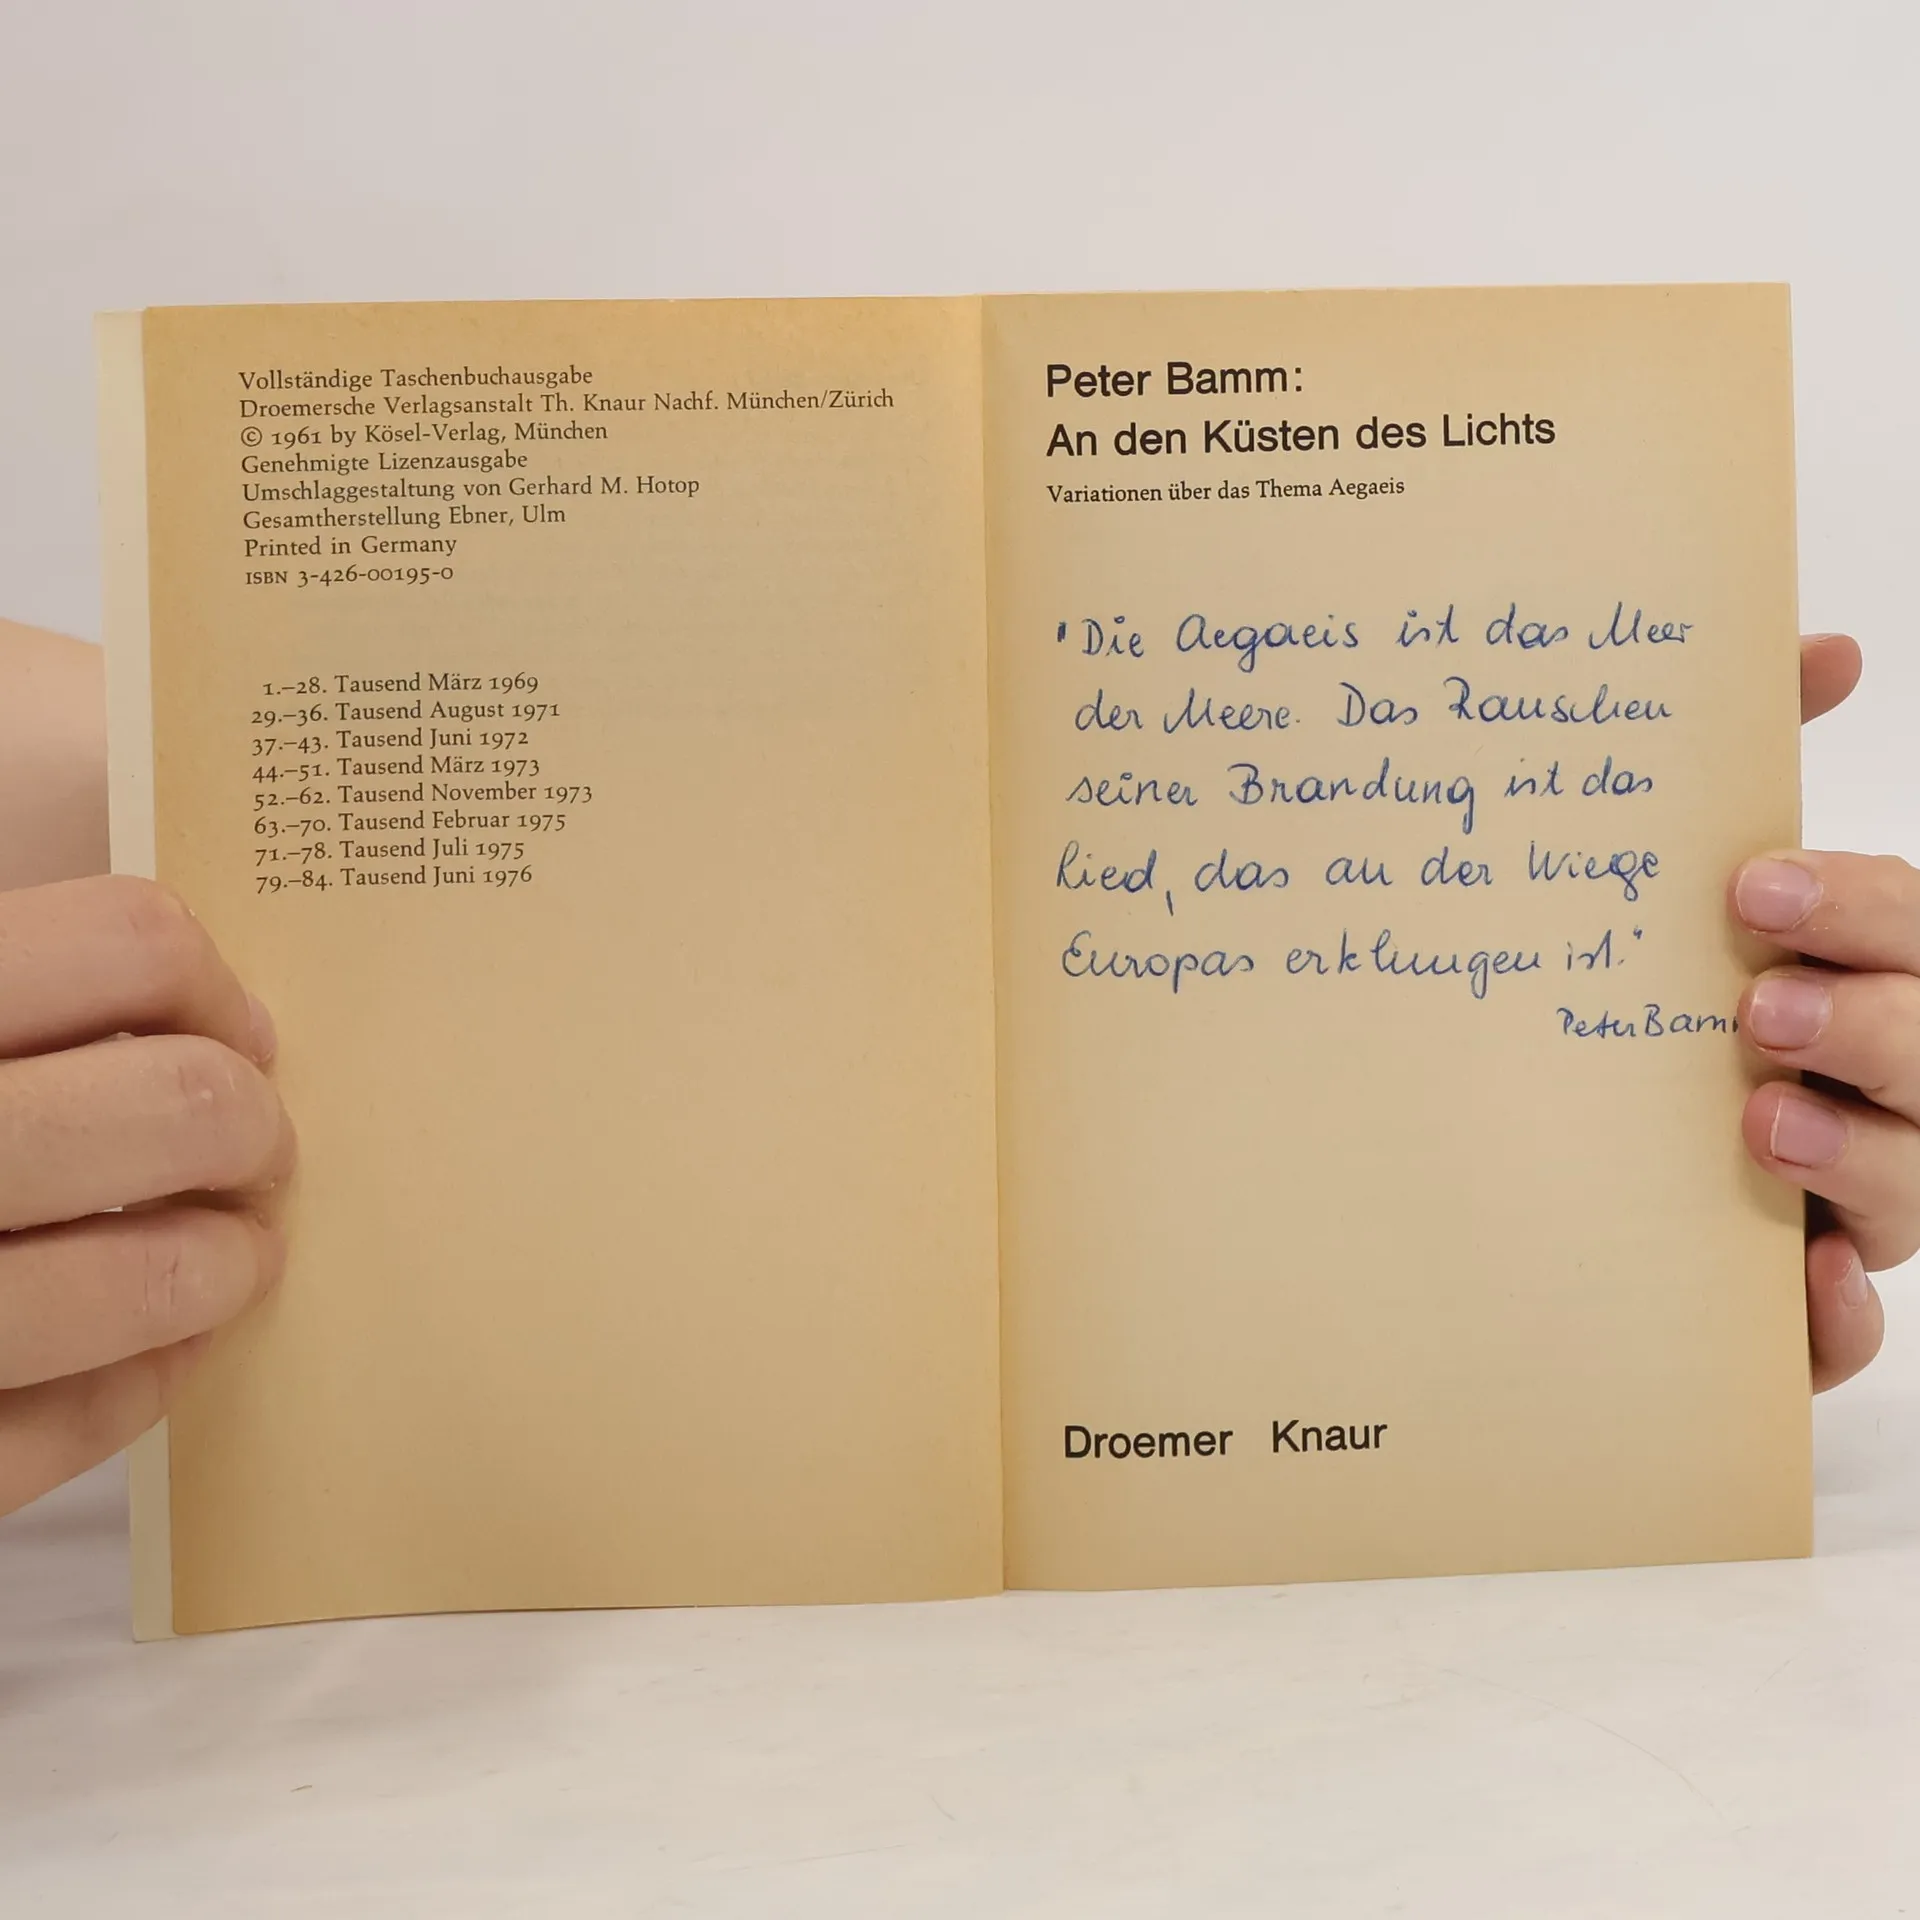 Vollständige Taschenbuchausgabe
Droemersche Verlagsanstalt Th. Knaur Nachf. München/Zürich
© 1961 by Kösel-Verlag, München
Genehmigte Lizenzausgabe
Umschlaggestaltung von Gerhard M. Hotop
Gesamtherstellung Ebner, Ulm
Printed in Germany
ISBN 3-426-00195-0
1.–28. Tausend März 1969
29.–36. Tausend August 1971
37.–43. Tausend Juni 1972
44.–51. Tausend März 1973
52.–62. Tausend November 1973
63.–70. Tausend Februar 1975
71.–78. Tausend Juli 1975
79.–84. Tausend Juni 1976
Peter Bamm:
An den Küsten des Lichts
Variationen über das Thema Aegaeis
"Die Aegaeis ist das Meer
der Meere. Das Rauschen
seiner Brandung ist das
Lied, das an der Wiege
Europas erklungen ist."
Peter Bam
Droemer Knaur